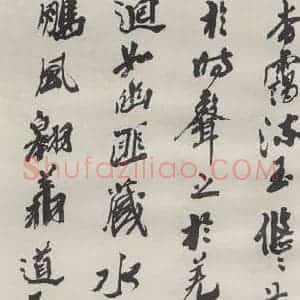 杳靄流玉悠〻
於時聲之於羌
迴如幽匪藏水
鵬風翱翔道
Shufaziliao.com